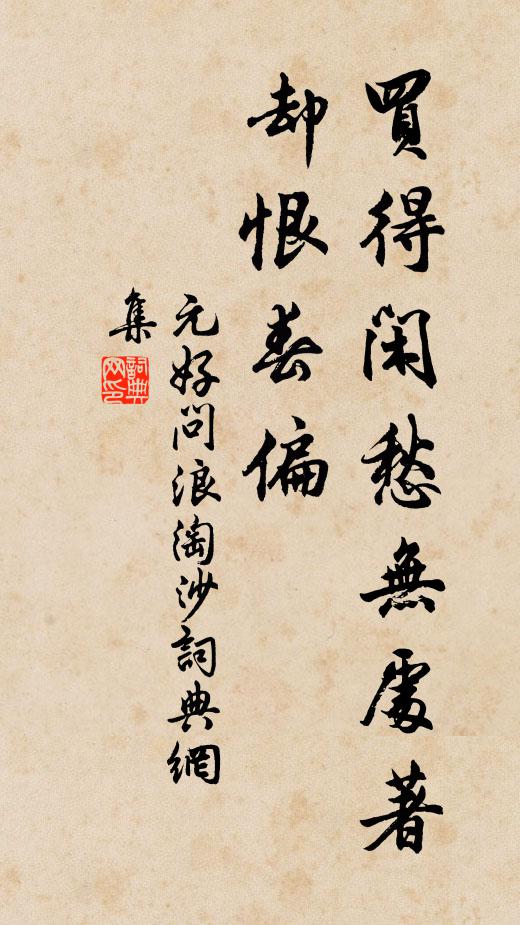 買得閑愁無處著
却恨春偏
元好問浪淘沙詞典網
集
詞典
网印